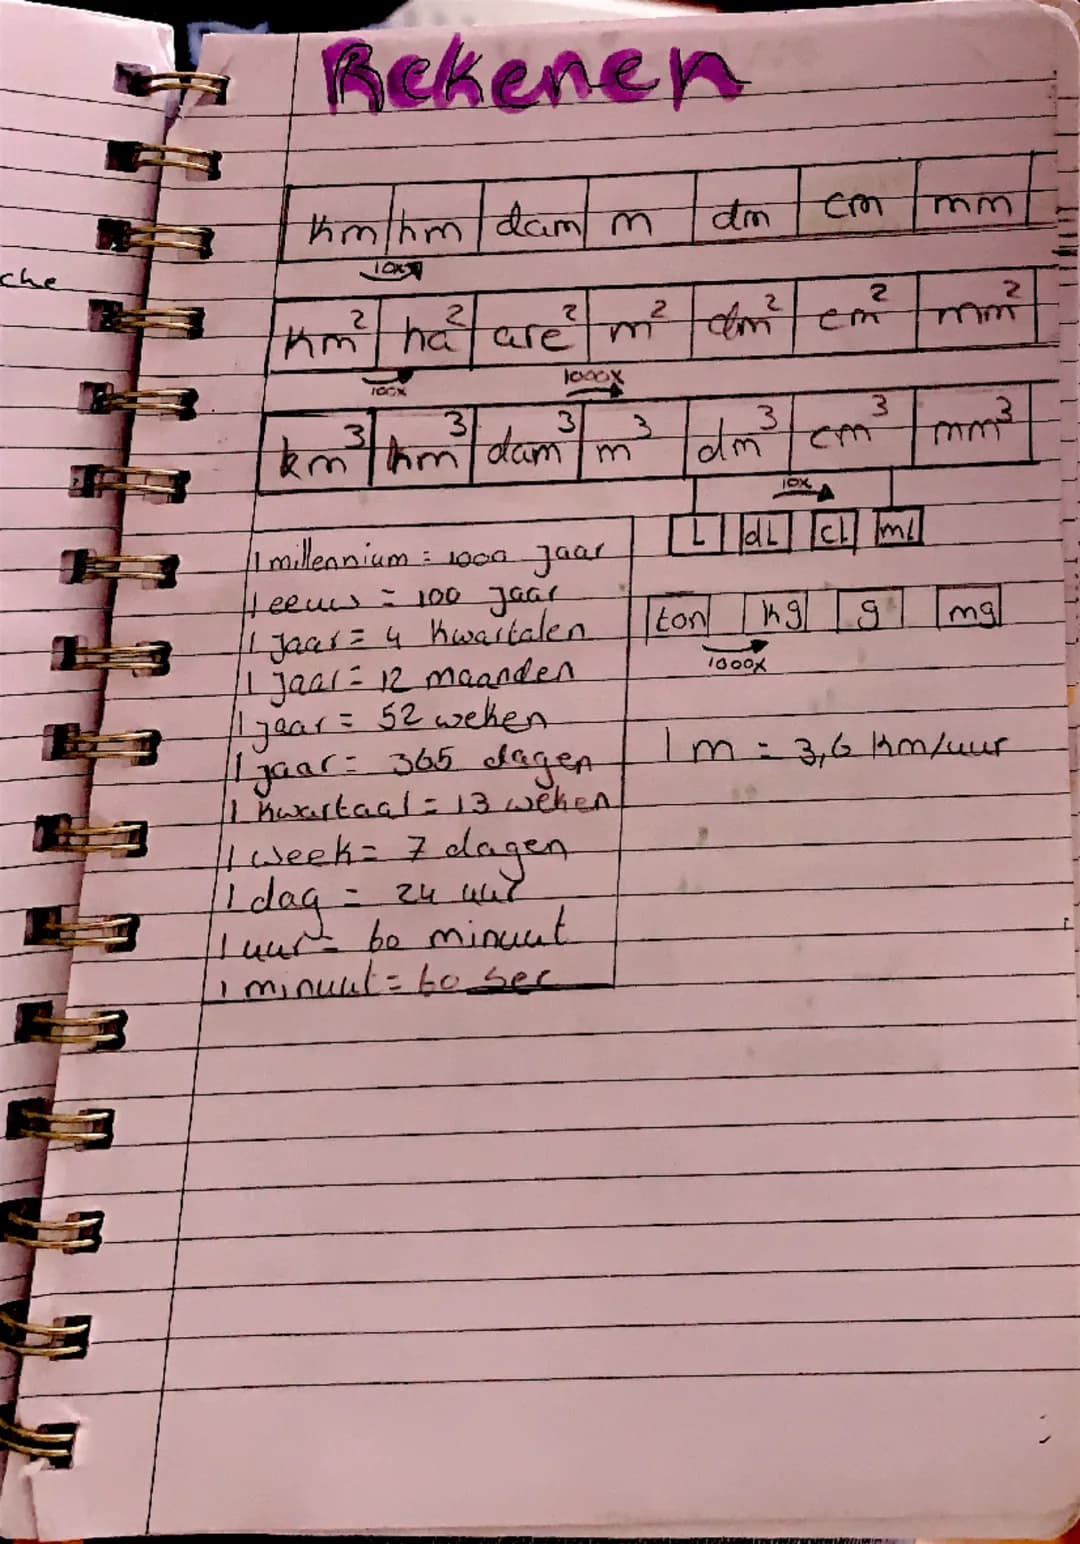 Rekenen
km hm dam m dm cm mm
10x
km² ha² are² m² dm² cm² mm²
100x 1000x
km³ hm³ dam³ m³ dm³ cm³ mm³
10x
L dL cl ml
1 millennium = 1000 jaar
1 eeuw = 100 jaar
1 jaar = 4 kwartalen
1 jaar = 12 maanden
1 jaar = 52 weken
1 jaar = 365 dagen
1 kwartaal = 13 weken
1 week = 7 dagen
1 dag = 24 uur
1 uur = 60 minuut
1 minuut = 60 sec
ton kg g mg
1000x
1 m = 3,6 km/uur
che